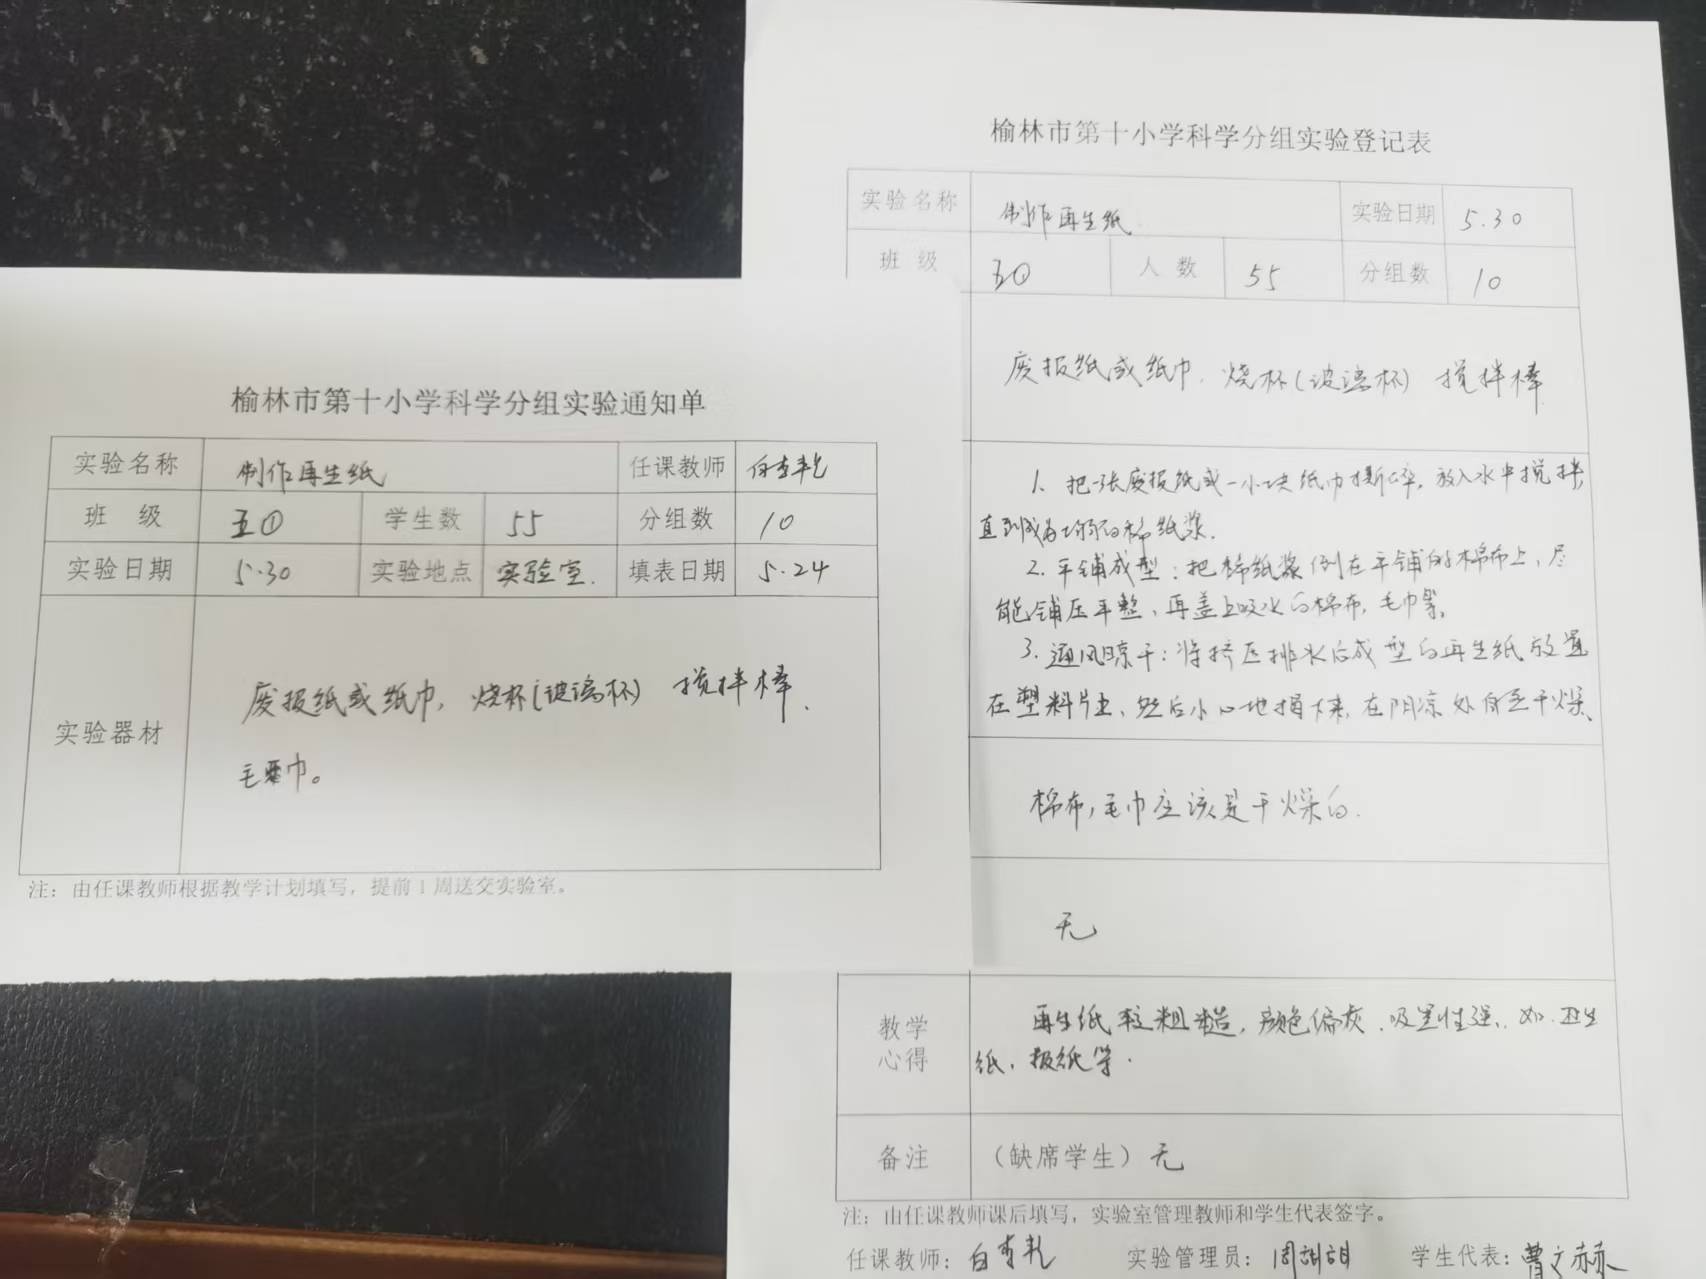 榆林市第十小学科学分组实验通知单
实验名称 制作再生纸 任课教师
班 级 五① 学生数 55 分组数 10
实验日期 5.30 实验地点 实验室. 填表日期 5.24
实验器材
废报纸或纸巾, 烧杯(玻璃杯) 搅拌棒.
毛巾。
注：由任课教师根据教学计划填写，提前1周送交实验室。
榆林市第十小学科学分组实验登记表
实验名称 制作再生纸. 实验日期 5.30
班 级 五① 人 数 55 分组数 10
废报纸或纸巾. 烧杯(玻璃杯) 搅拌棒
1. 把一张废报纸或一小块纸巾撕碎, 放入水中搅拌,
直到成为均匀的棉纸浆.
2. 平铺成型：把棉纸浆倒在平铺的棉布上, 尽
能铺压平整, 再盖上吸水的棉布, 毛巾等.
3. 通风晾干：将挤压排水后成型的再生纸放置
在塑料片上, 然后小心地揭下来, 在阴凉处自至干燥、
棉布, 毛巾应该是干燥的.
无
教学心得
再生纸较粗糙, 颜色偏灰. 吸墨性强, 如.卫生
纸. 报纸等.
备注 （缺席学生）无
注：由任课教师课后填写，实验室管理教师和学生代表签字。
任课教师： 实验管理员： 学生代表：曹文赫